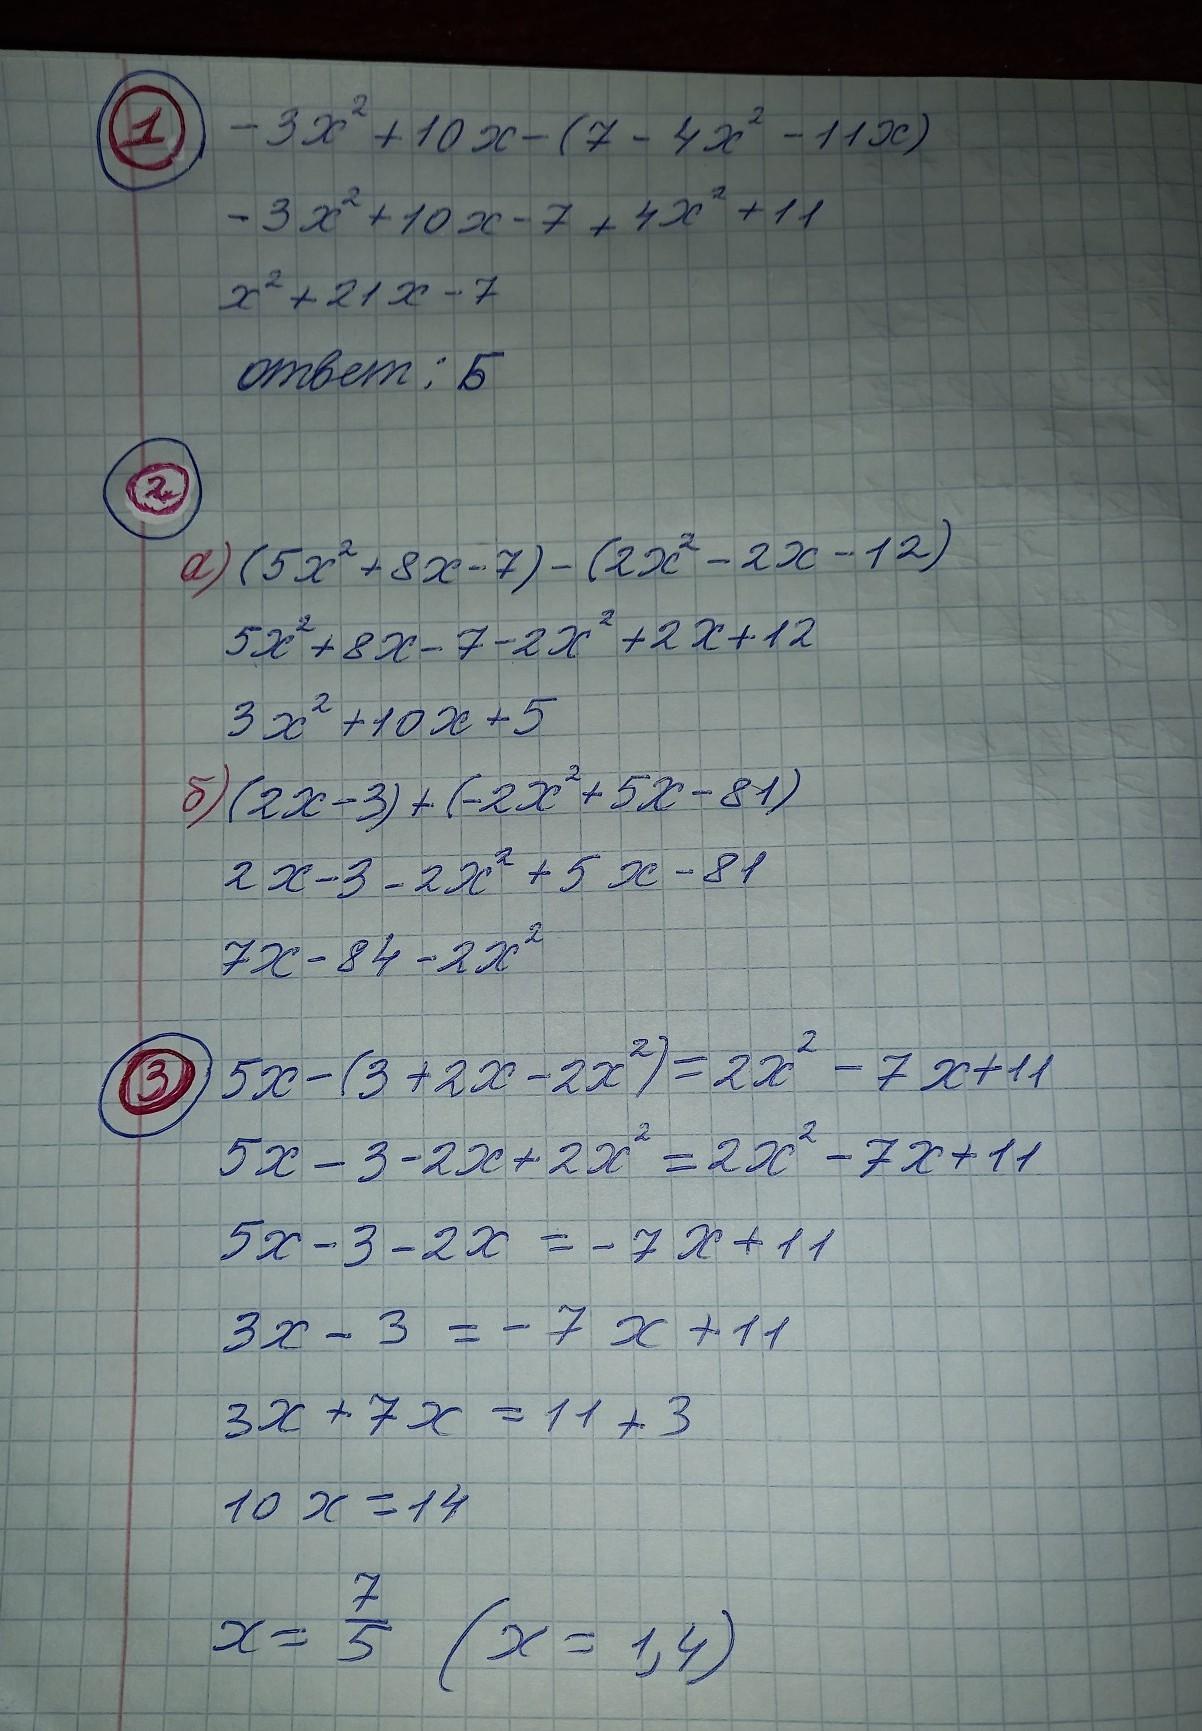 1 -3x² + 10x - (7 - 4x² - 11x)
-3x² + 10x - 7 + 4x² + 11
x² + 21x - 7
ответ: Б
2
а) (5x² + 8x - 7) - (2x² - 2x - 12)
5x² + 8x - 7 - 2x² + 2x + 12
3x² + 10x + 5
б) (2x - 3) + (-2x² + 5x - 81)
2x - 3 - 2x² + 5x - 81
7x - 84 - 2x²
3 5x - (3 + 2x - 2x²) = 2x² - 7x + 11
5x - 3 - 2x + 2x² = 2x² - 7x + 11
5x - 3 - 2x = -7x + 11
3x - 3 = -7x + 11
3x + 7x = 11 + 3
10x = 14
x = 7/5 (x = 1,4)